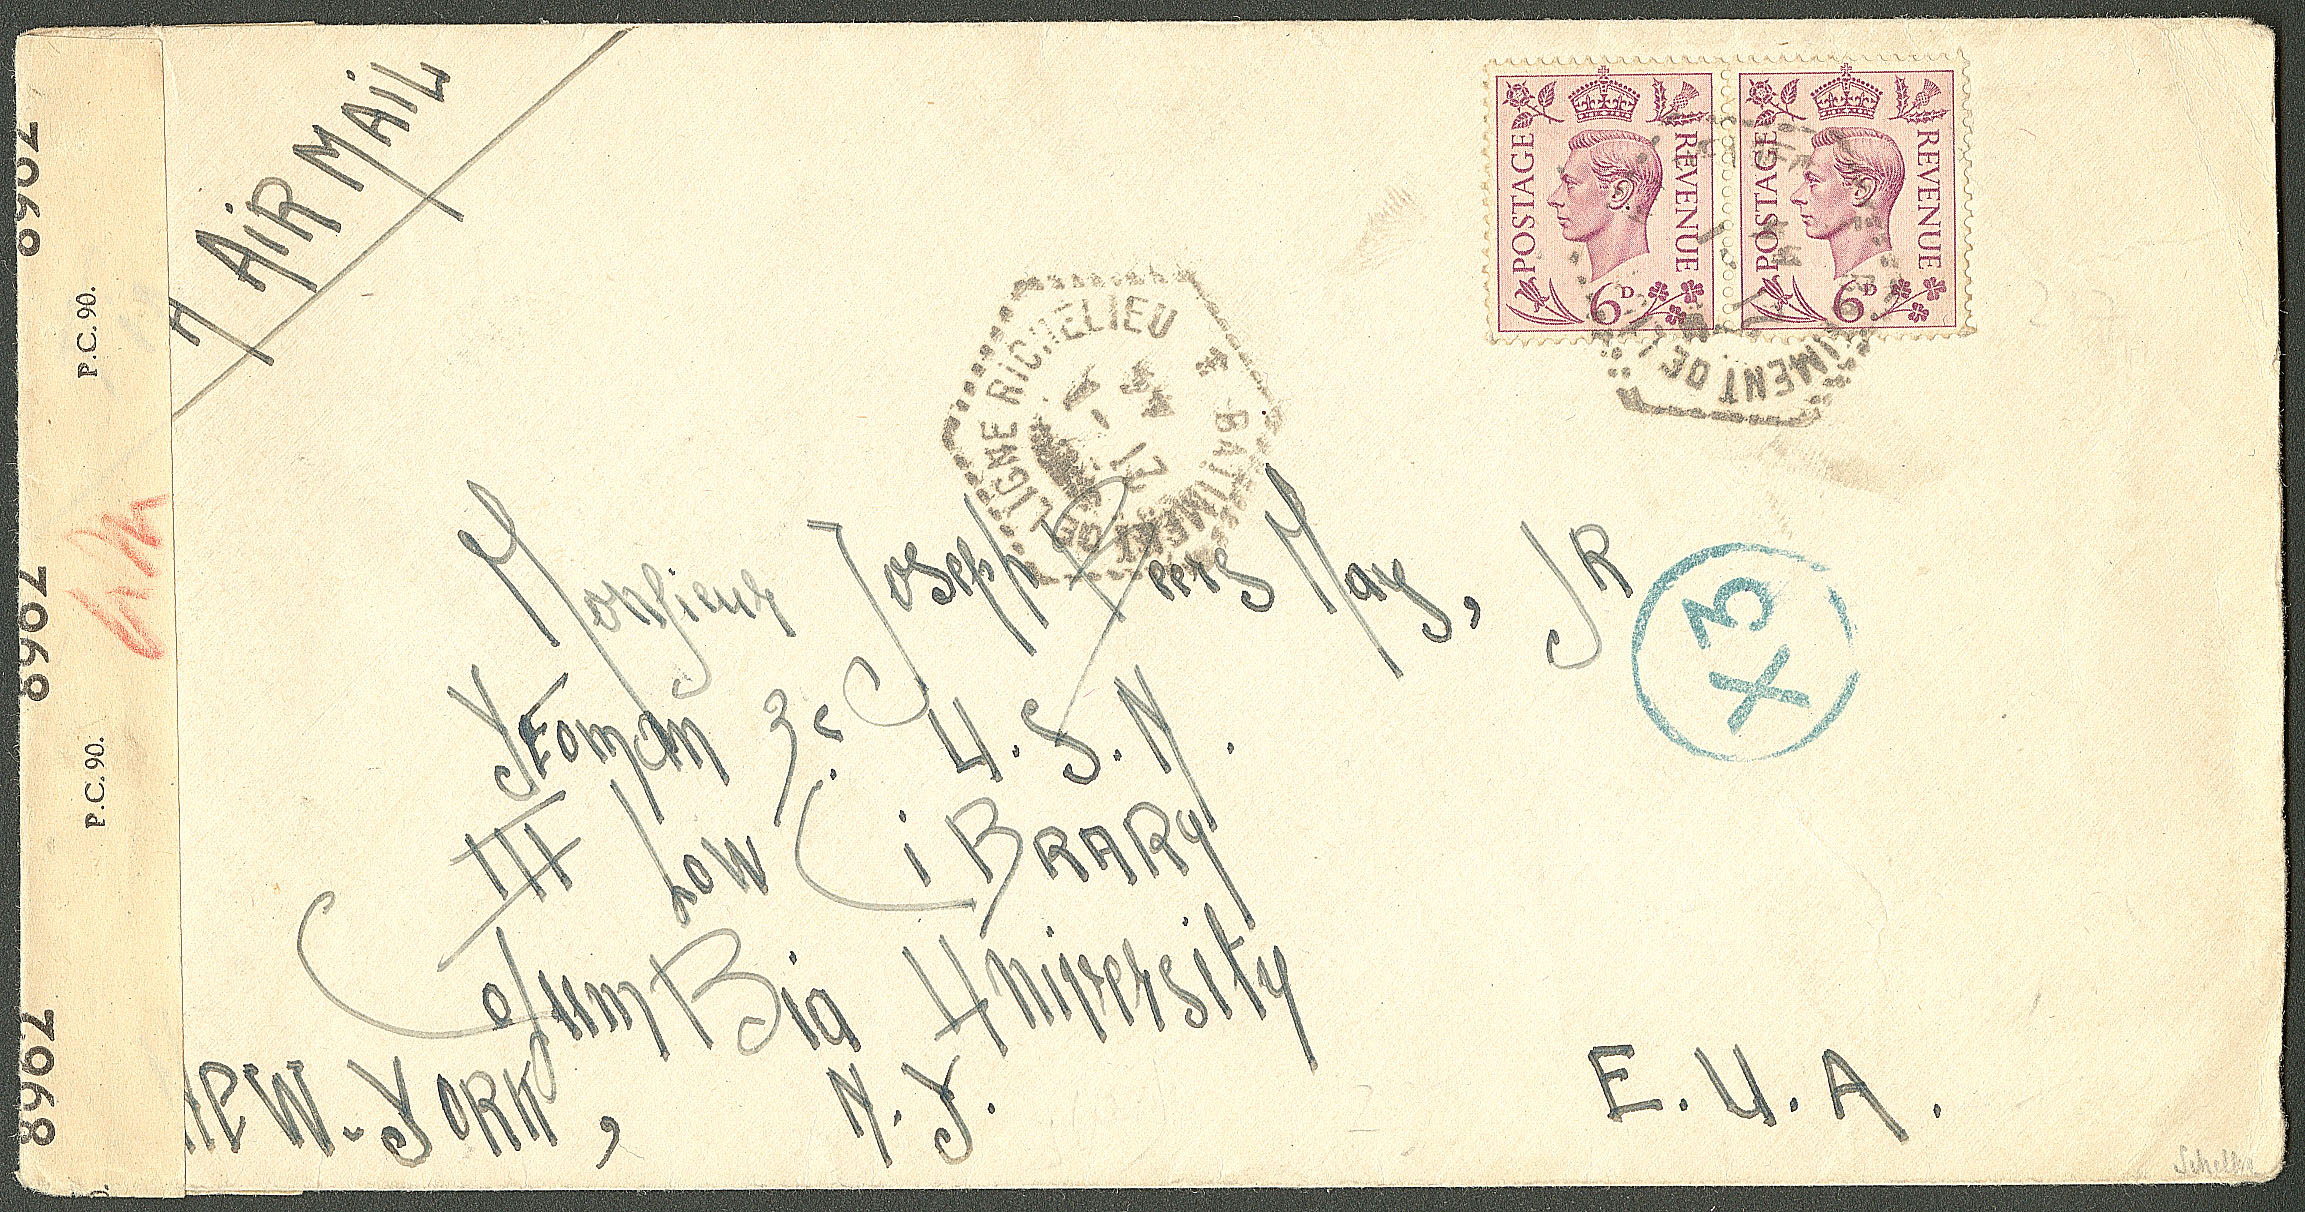 AIR MAIL
POSTAGE REVENUE 6D
POSTAGE REVENUE 6D
BATIMENT DE LIGNE RICHELIEU *
IMENT DE
Monsieur Joseph Peers May, JR
X3
YEoman 3c U.S.N.
111 Low LiBRARy
ColumBia University
NEW-YORK, N.Y.
E.U.A.
8962
P.C. 90.
8962
P.C. 90.
8962